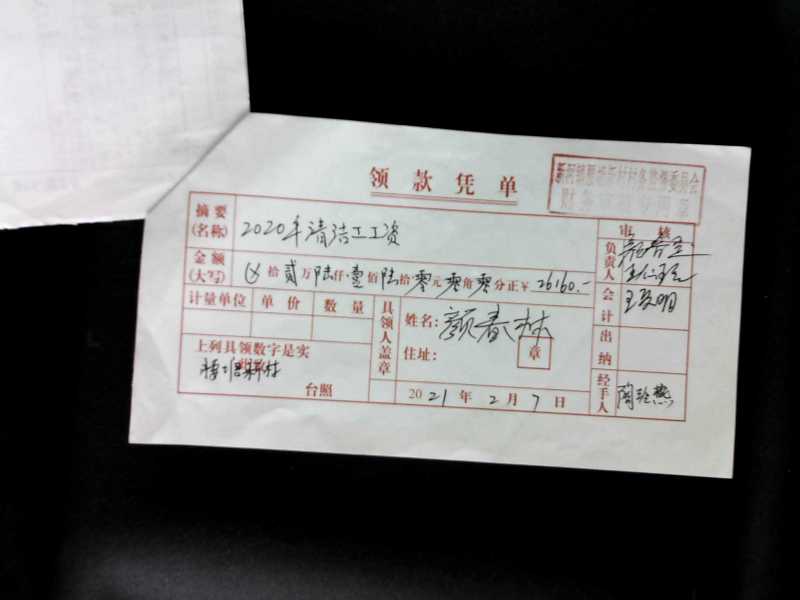 领款凭单
摘要(名称) 2020年清洁工工资
审核
金额(大写) 拾贰万陆仟壹佰陆拾零元零角零分正¥26160.-
负责人
计量单位 单价 数量
具领人盖章
姓名: 颜春林
会计
住址:
章
出纳
上列具领数字是实
台照
2021年2月7日
经手人